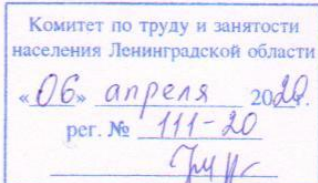 Комитет по труду и занятости
населения Ленинградской области
«06» апреля 2020г.
рег. № 111-20